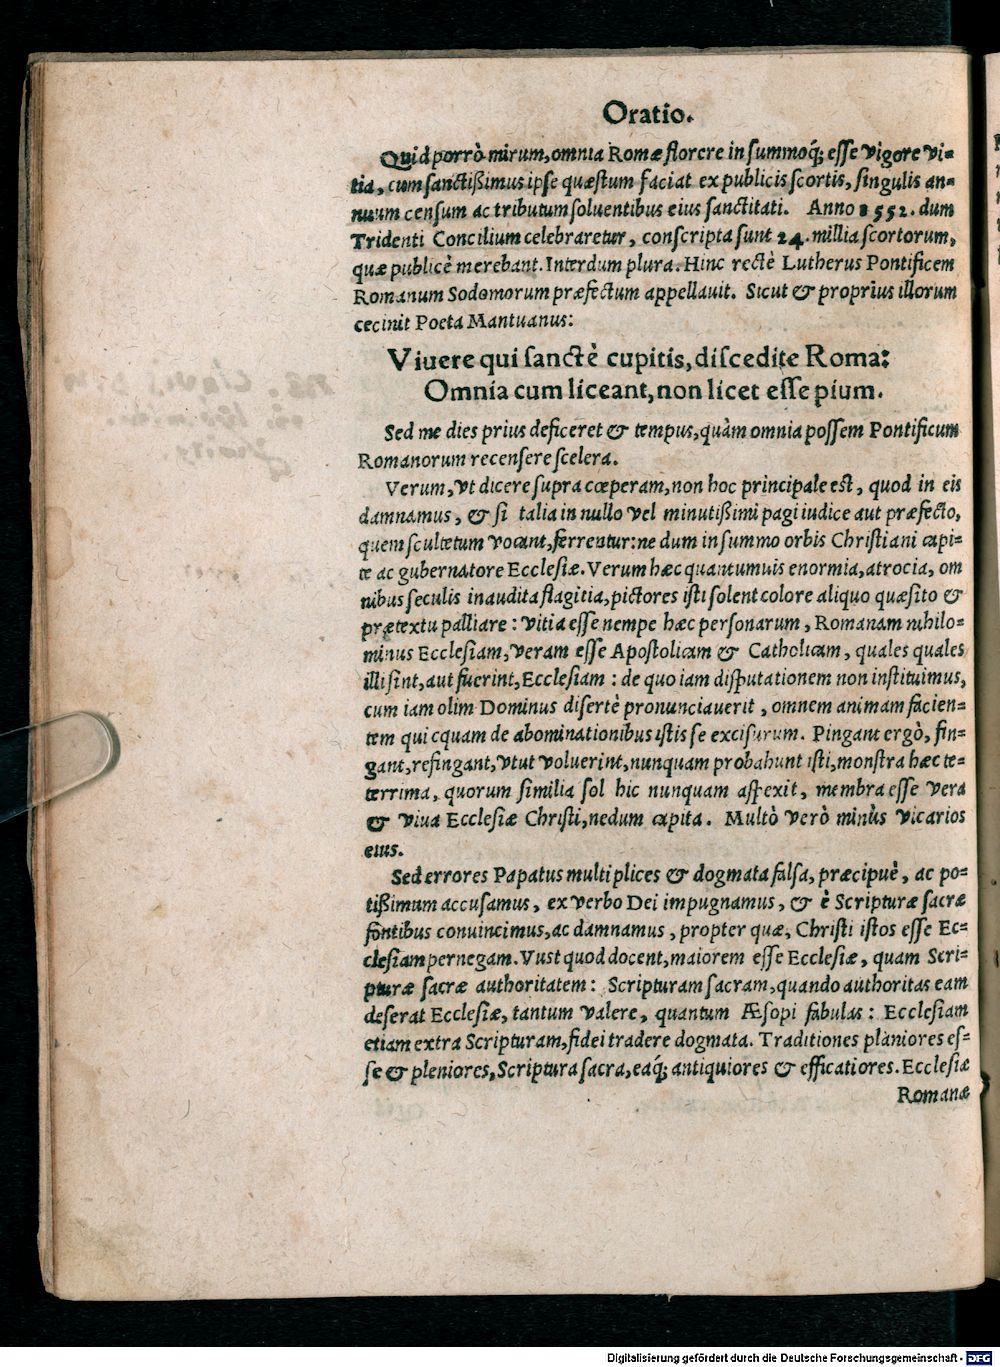 Oratio.
Quid porrò mirum, omnia Romæ florere in summoq́; esse vigore vi-
tia, cum sanctißimus ipse quæstum faciat ex publicis scortis, singulis an-
nuum censum ac tributum soluentibus eius sanctitati. Anno 1552. dum
Tridenti Concilium celebraretur, conscripta sunt 24. millia scortorum,
quæ publicè merebant. Interdum plura. Hinc rectè Lutherus Pontificem
Romanum Sodomorum præfectum appellauit. Sicut & proprius illorum
cecinit Poeta Mantuanus:
Viuere qui sanctè cupitis, discedite Roma:
Omnia cum liceant, non licet esse pium.
Sed me dies prius deficeret & tempus, quàm omnia possem Pontificum
Romanorum recensere scelera.
Verum, vt dicere supra cœperam, non hoc principale est, quod in eis
damnamus, & si talia in nullo vel minutißimi pagi iudice aut præfecto,
quem scultetum vocant, ferrentur: ne dum in summo orbis Christiani capi-
te ac gubernatore Ecclesiæ. Verum hæc quantumuis enormia, atrocia, om
nibus seculis inaudita flagitia, pictores isti solent colore aliquo quæsito &
prætextu palliare: vitia esse nempe hæc personarum, Romanam nihilo-
minus Ecclesiam, veram esse Apostolicam & Catholicam, quales quales
illi sint, aut fuerint, Ecclesiam: de quo iam disputationem non instituimus,
cum iam olim Dominus disertè pronunciauerit, omnem animam facien-
tem quicquam de abominationibus istis se excisurum. Pingant ergò, fin-
gant, refingant, vtut voluerint, nunquam probabunt isti, monstra hæc te-
terrima, quorum similia sol hic nunquam aspexit, membra esse vera
& viua Ecclesiæ Christi, nedum capita. Multò verò minùs vicarios
eius.
Sed errores Papatus multiplices & dogmata falsa, præcipuè, ac po-
tißimum accusamus, ex verbo Dei impugnamus, & è Scripturæ sacræ
fontibus conuincimus, ac damnamus, propter quæ, Christi istos esse Ec-
clesiam pernegam. Vust quod docent, maiorem esse Ecclesiæ, quam Scri-
pturæ sacræ authoritatem: Scripturam sacram, quando authoritas eam
deserat Ecclesiæ, tantum valere, quantum Æsopi fabulas: Ecclesiam
etiam extra Scripturam, fidei tradere dogmata. Traditiones planiores es-
se & pleniores, Scriptura sacra, eaq́; antiquiores & efficatiores. Ecclesiæ
Romanæ
Digitalisierung gefördert durch die Deutsche Forschungsgemeinschaft - DFG